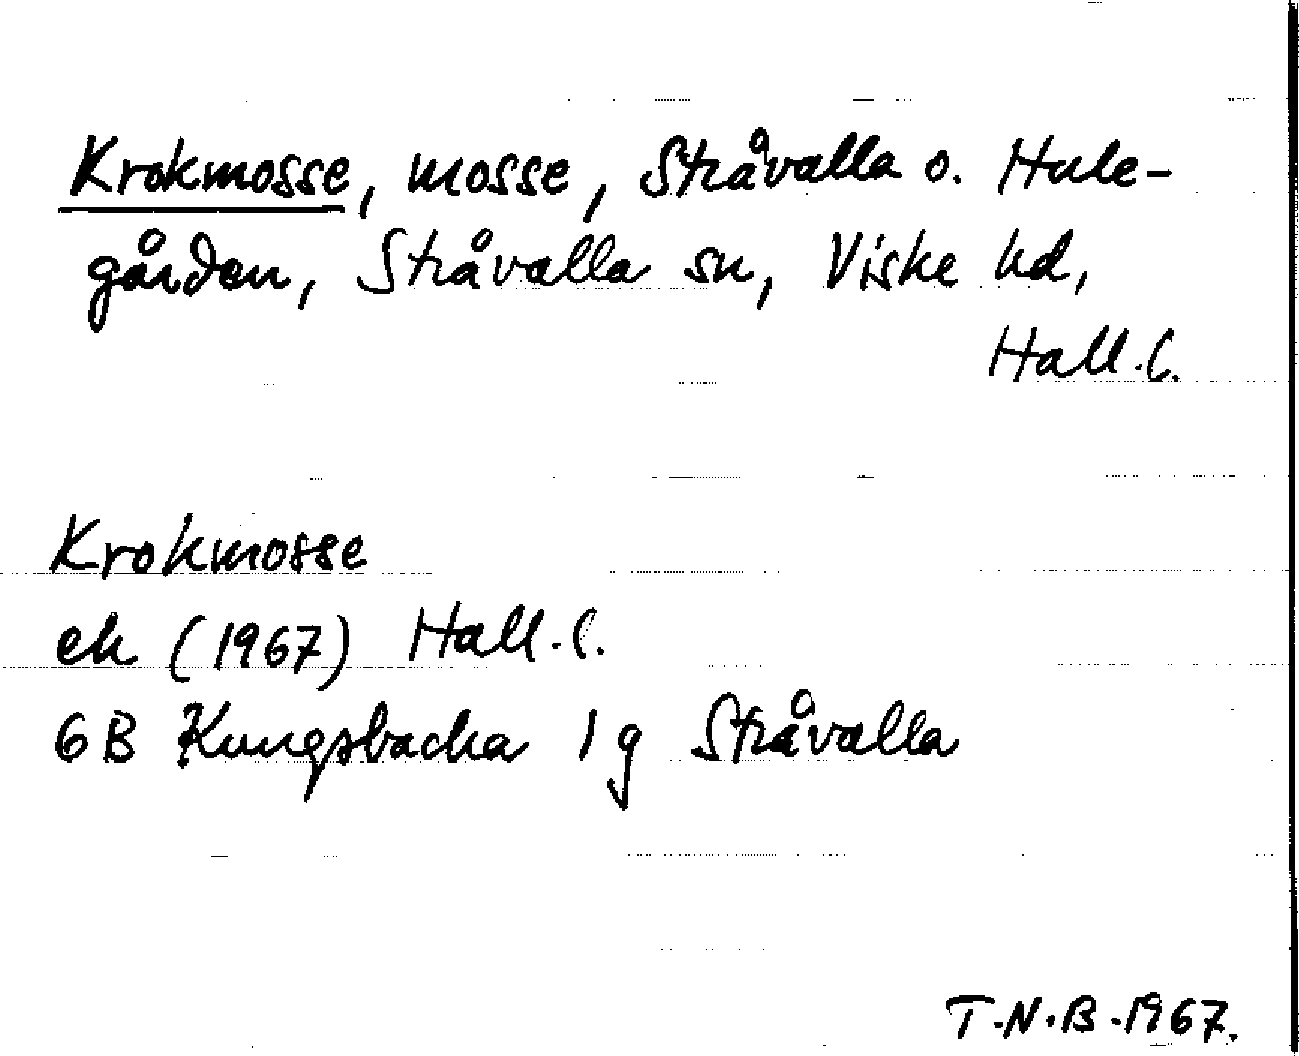 Krokmosse, mosse, Stråvalla o. Hule-
gården, Stråvalla sn, Viske hd,
Hall. l.
Krokmosse
ek (1967) Hall. l.
6B Kungsbacka 1g Stråvalla
T.N.B. 1967.